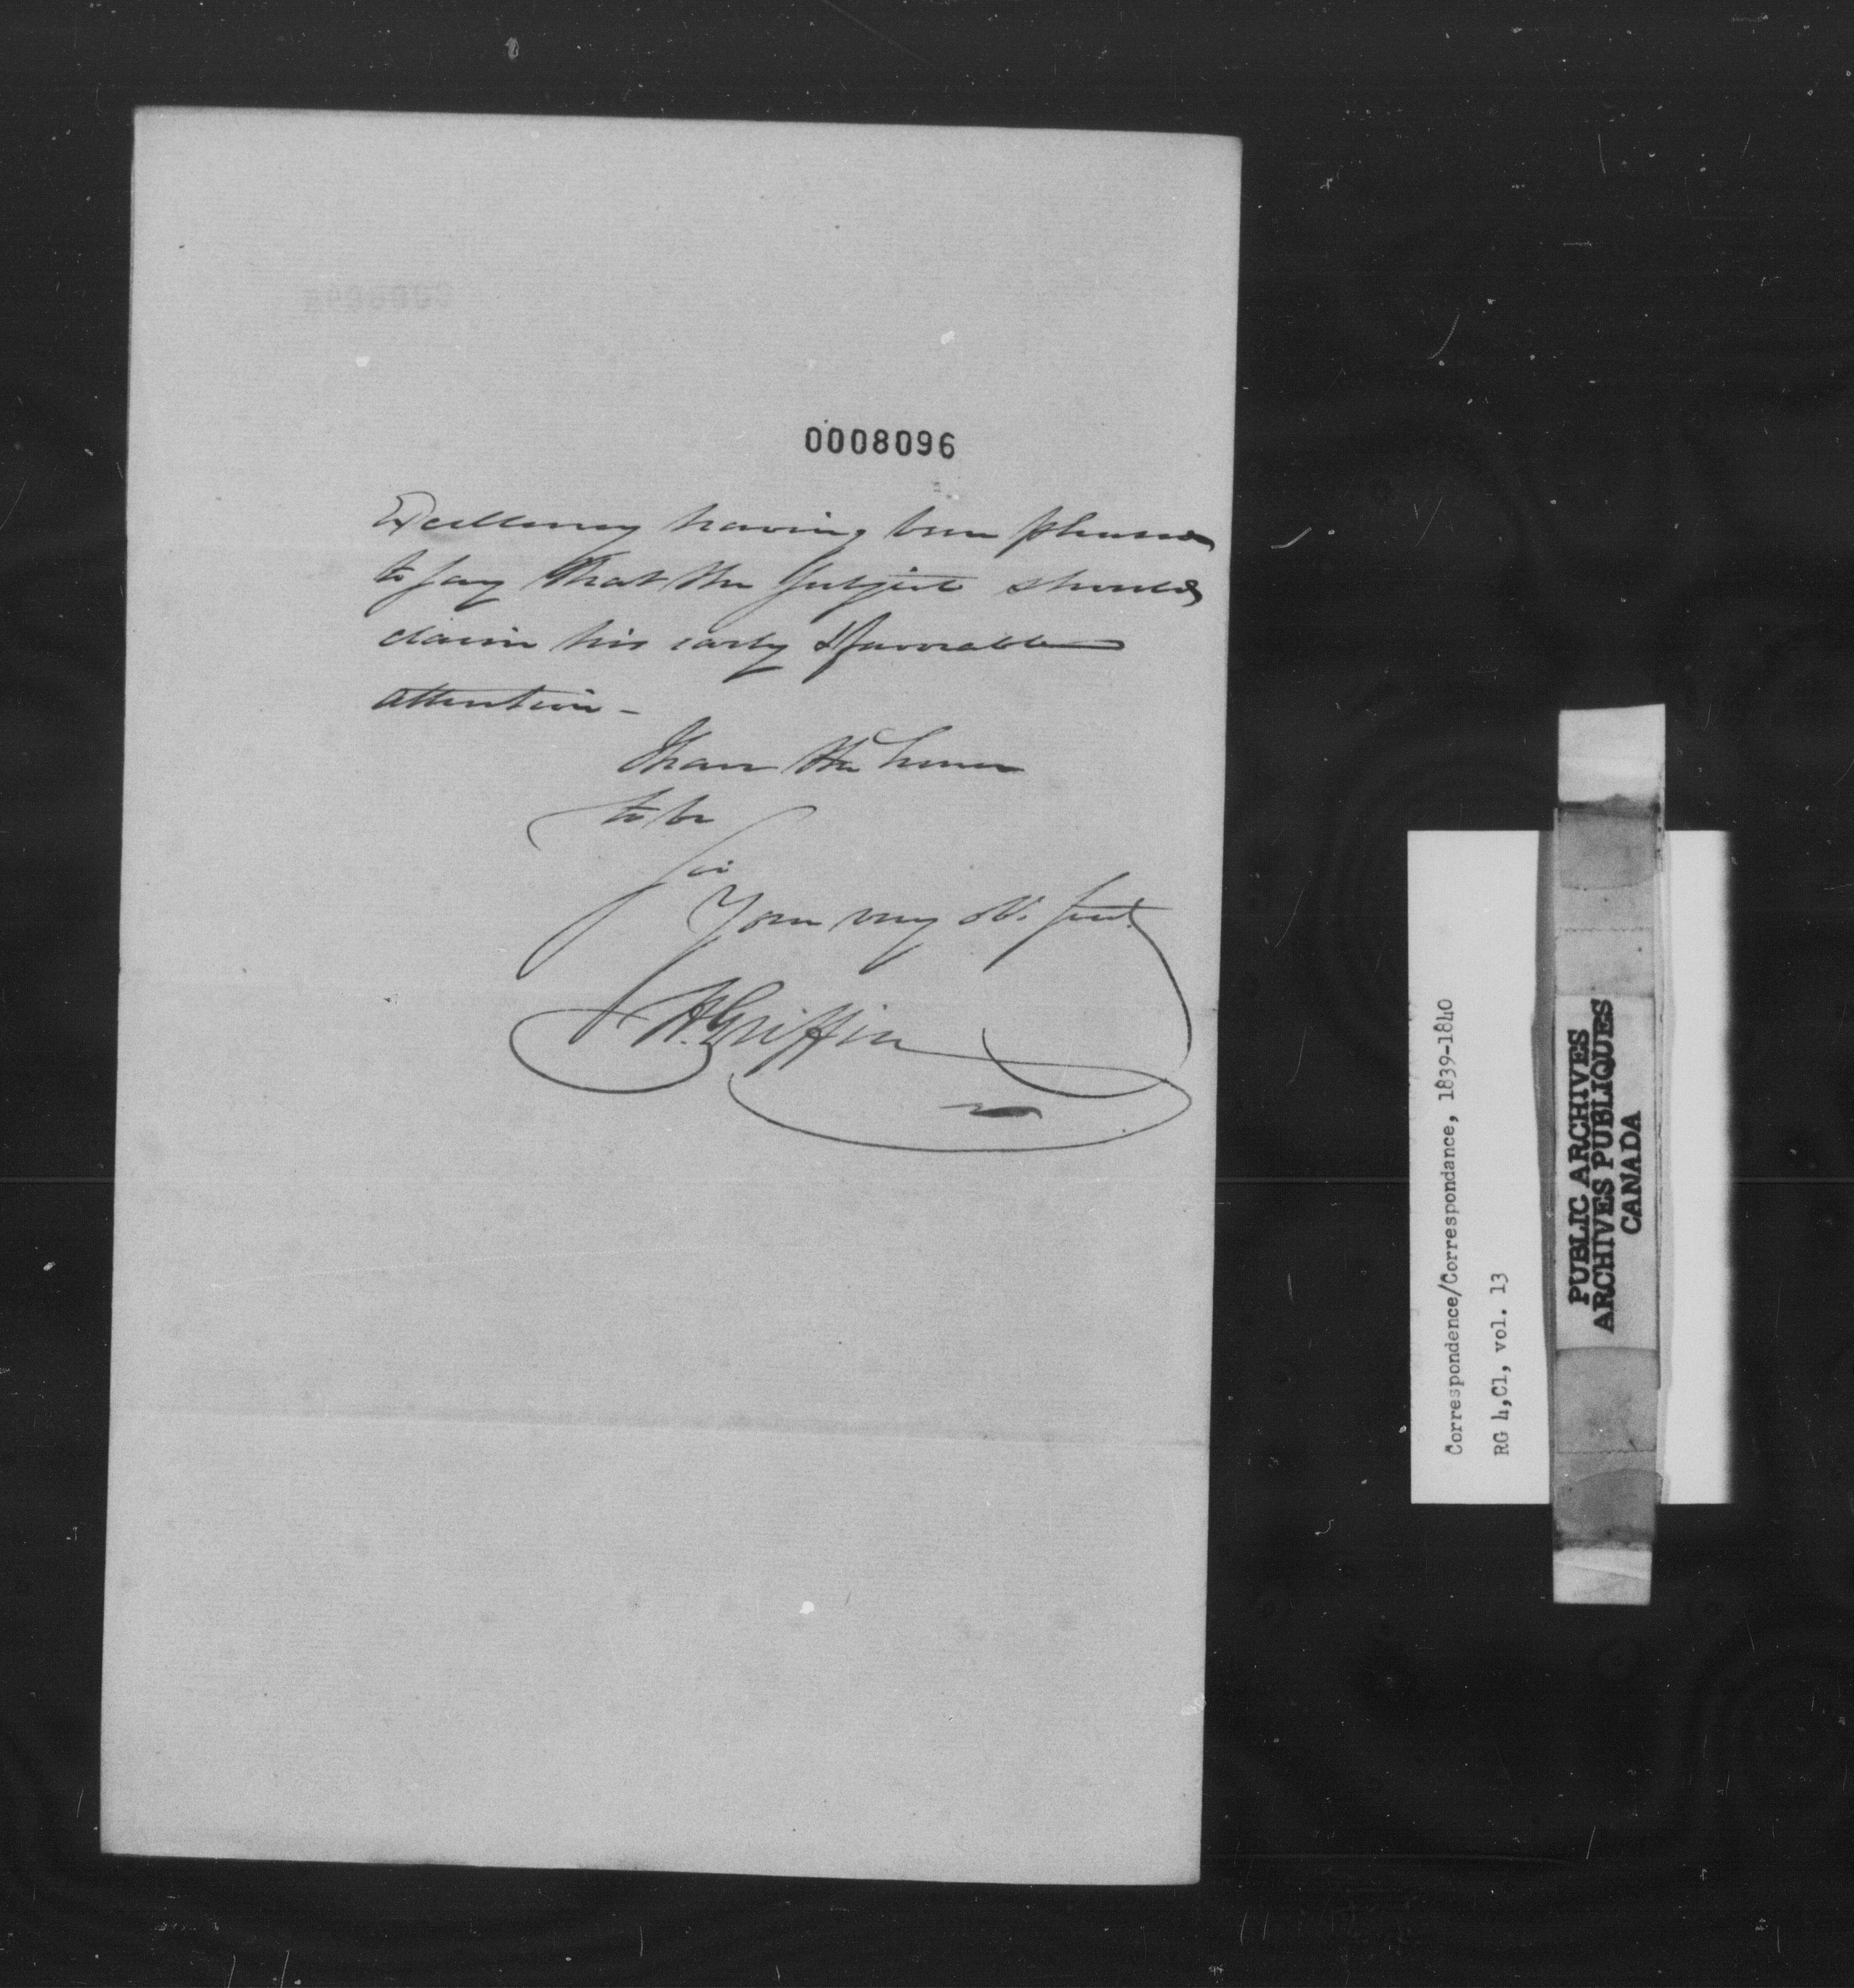 0008096
Excellency having been pleased
to say that the subject should
claim his early & favorable
attention -
I have the honor
to be
Sir
Your very ob. servt
H. Griffin
Correspondence/Correspondance, 1839-1840
RG 4,C1, vol. 13
PUBLIC ARCHIVES
ARCHIVES PUBLIQUES
CANADA